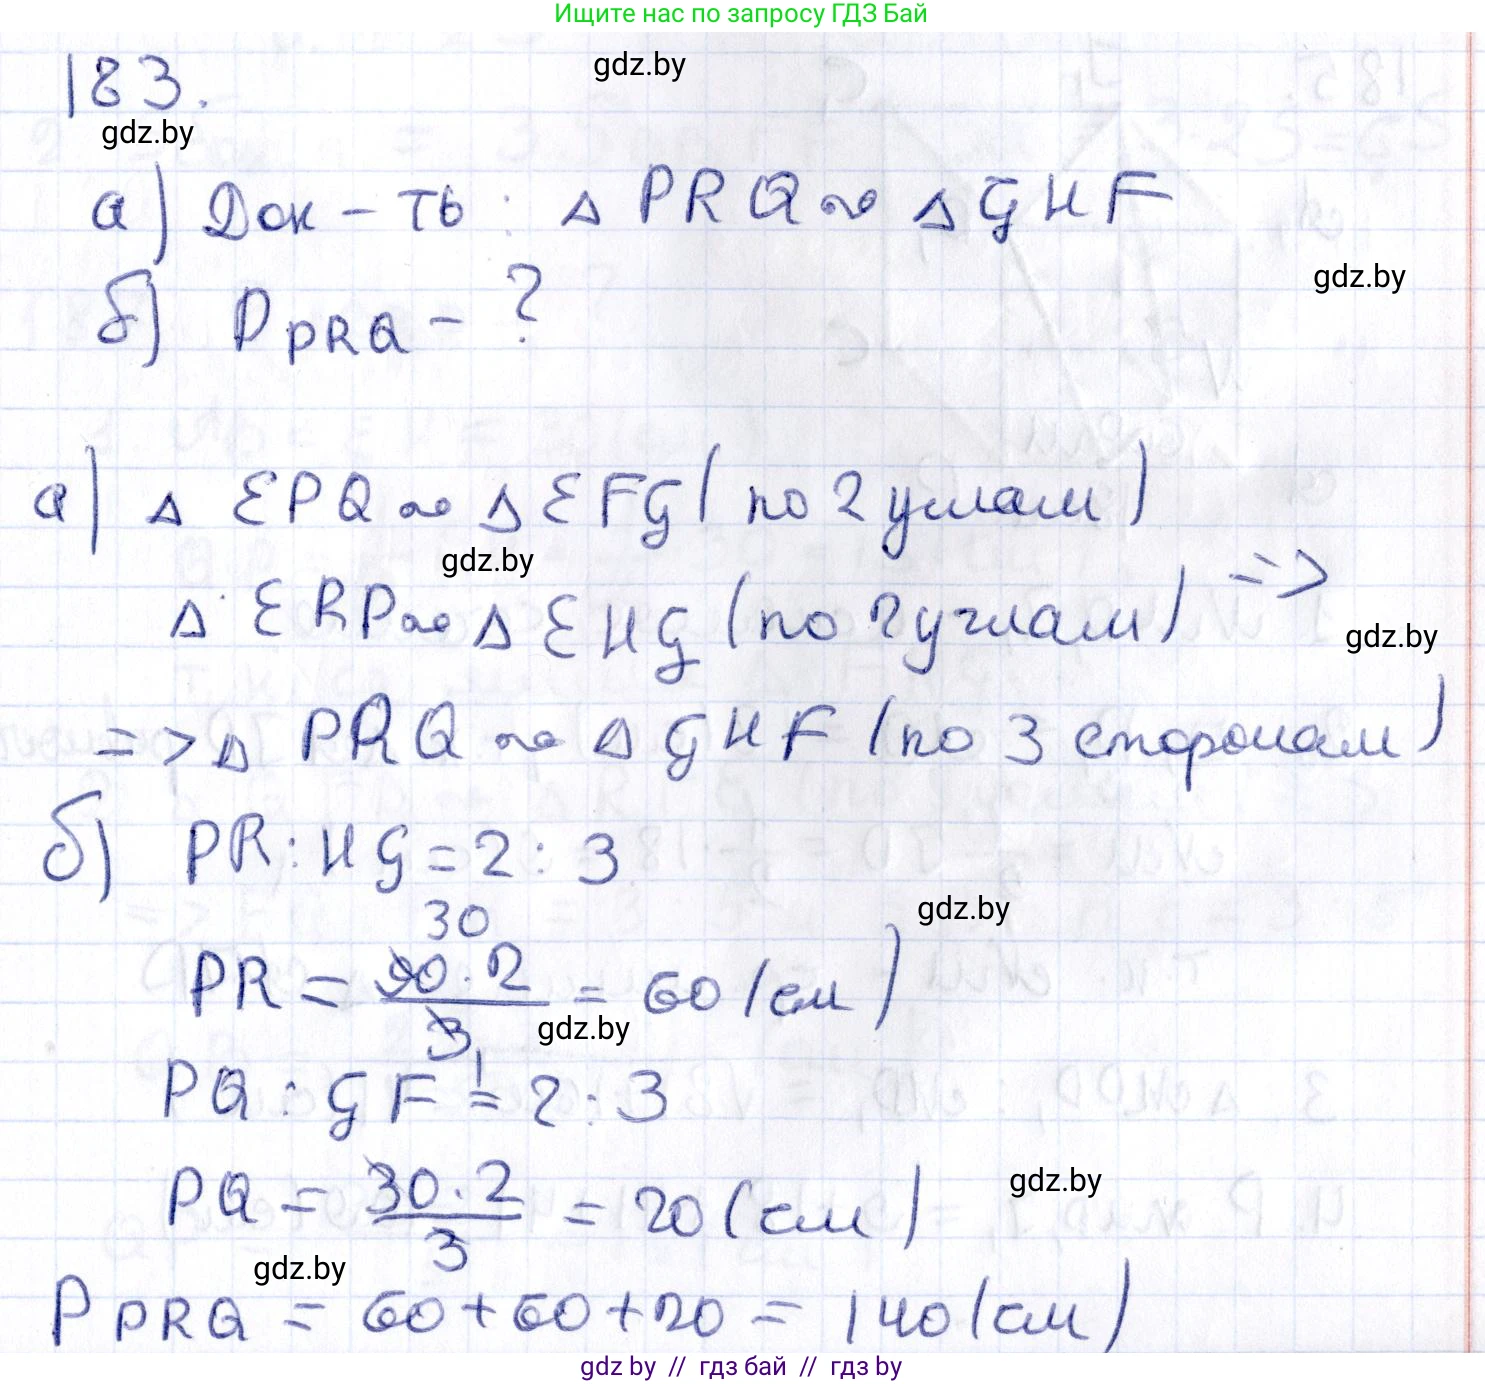 Ищите нас по запросу ГДЗ Бай
183.
gdz.by
gdz.by
а) Док-ть: △ PRQ ∾ △ GHF
gdz.by
б) P PRQ - ?
а) △ EPQ ∾ △ EFG (по 2 углам)
gdz.by
△ ERP ∾ △ EHG (по 2 углам) =>
gdz.by
=> △ PRQ ∾ △ GHF (по 3 сторонам)
б) PR : HG = 2 : 3
gdz.by
PR = 90·2/3 = 60 (см)
30
gdz.by
1
PQ : GF = 2 : 3
PQ = 30·2/3 = 20 (см)
gdz.by
gdz.by
P PRQ = 60 + 60 + 20 = 140 (см)
gdz.by // гдз бай // гдз by